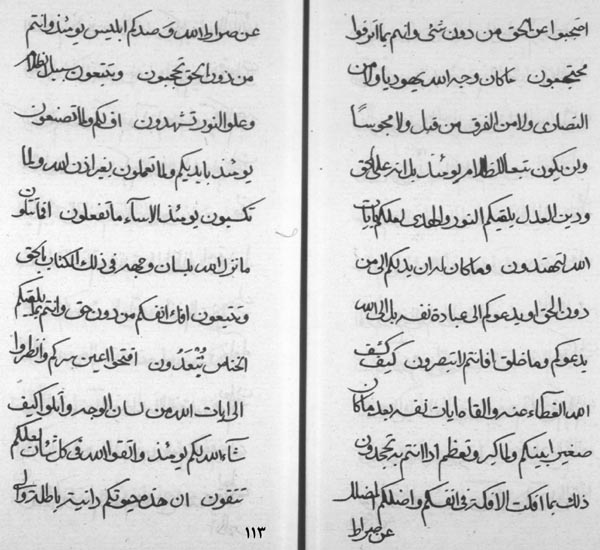 احتجبوا عن الحق من دون شئ وانتم بما اترفوا
محتجبون ما كان وجه الله يهوديا ولا من
النصارى ولا من الفرق من قبل ولا مجوسا
ولن يكون تبعا للظلام يومئذ بل انه على الحق
ودين العدل يلقيكم النور والهدى لعلكم بايات
الله لتهتدون وما كان له ان يدعكم الى من
دون الحق او يدعوكم الى عبادة نفسه بل الى الله
يدعوكم وما خلق افانتم لا تبصرون كيف كشف
الله الغطاء عنه والقاه ايات نفسه بعد ما كان
صغيرا بينكم ولما كبر وتعظم اذا انتم به تجحدون
ذلك بما افكت الافكة فى انفسكم واضلكم المضلل
عن صراط
عن صراط الله وصدكم ابليس يومئذ وانتم
من دون الحق تحجبون وتتبعون سبيل الظلام
وعلو النور تشهدون اف لكم ولما تصنعون
يومئذ بايديكم ولما تعملون بغير اذن الله ولما
تكسبون يومئذ الا ساء ما تفعلون افا تتلون
ما نزل الله بلسان وجهه فى ذلك الكتاب بالحق
وتتبعون افك انفسكم من دون حق وانتم بما يلقيكم
الخناس تُبْعَدُون افتحوا اعين سركم وانظروا
الى ايات الله من لسان الوجه واتلوا كيف
شاء الله بكم يومئذ واتقوا الله فى كل شان لعلكم
تتقون ان هذه حيوتكم دانية باطلة
١١٣